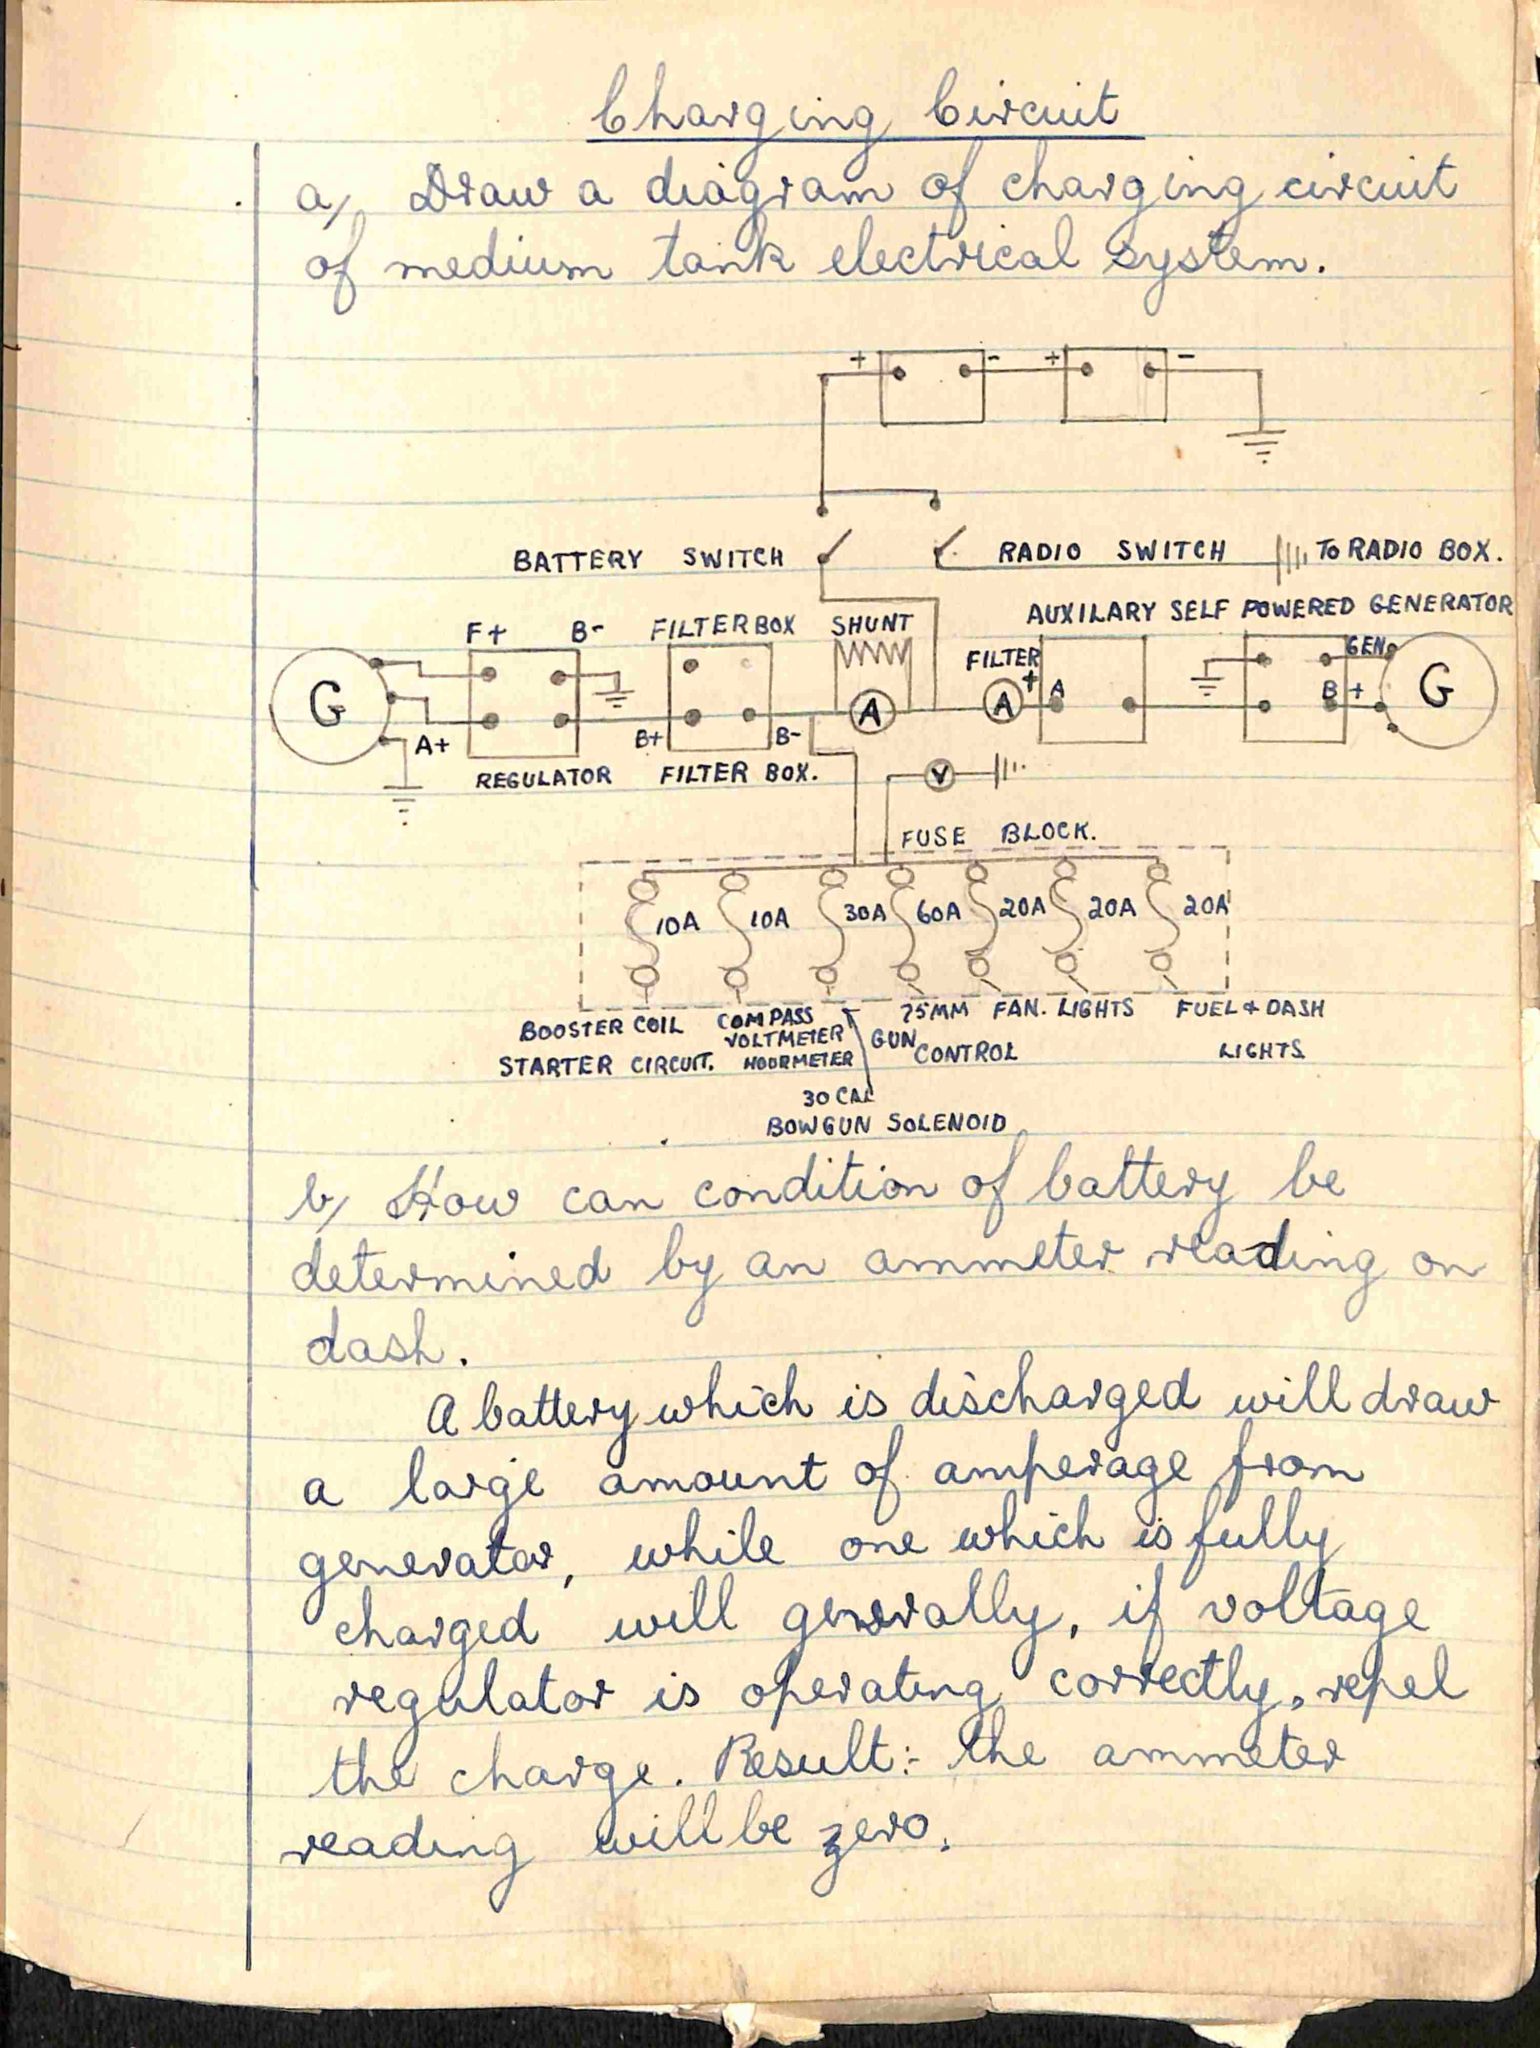 Charging Circuit
a/ Draw a diagram of charging circuit
of medium tank electrical system.
+ - + -
BATTERY SWITCH RADIO SWITCH TO RADIO BOX.
AUXILARY SELF POWERED GENERATOR
F+ B- FILTERBOX SHUNT
FILTER GEN
+
G A A A G
B +
A+ B+ B-
REGULATOR FILTER BOX.
V
FUSE BLOCK.
10A 10A 30A 60A 20A 20A 20A
BOOSTER COIL COMPASS 75MM FAN. LIGHTS FUEL & DASH
VOLTMETER GUN
STARTER CIRCUIT. HOURMETER CONTROL LIGHTS
30 CAL
BOWGUN SOLENOID
b/ How can condition of battery be
determined by an ammeter reading on
dash.
A battery which is discharged will draw
a large amount of amperage from
generator, while one which is fully
charged will generally, if voltage
regulator is operating correctly, repel
the charge. Result:- the ammeter
reading will be zero.